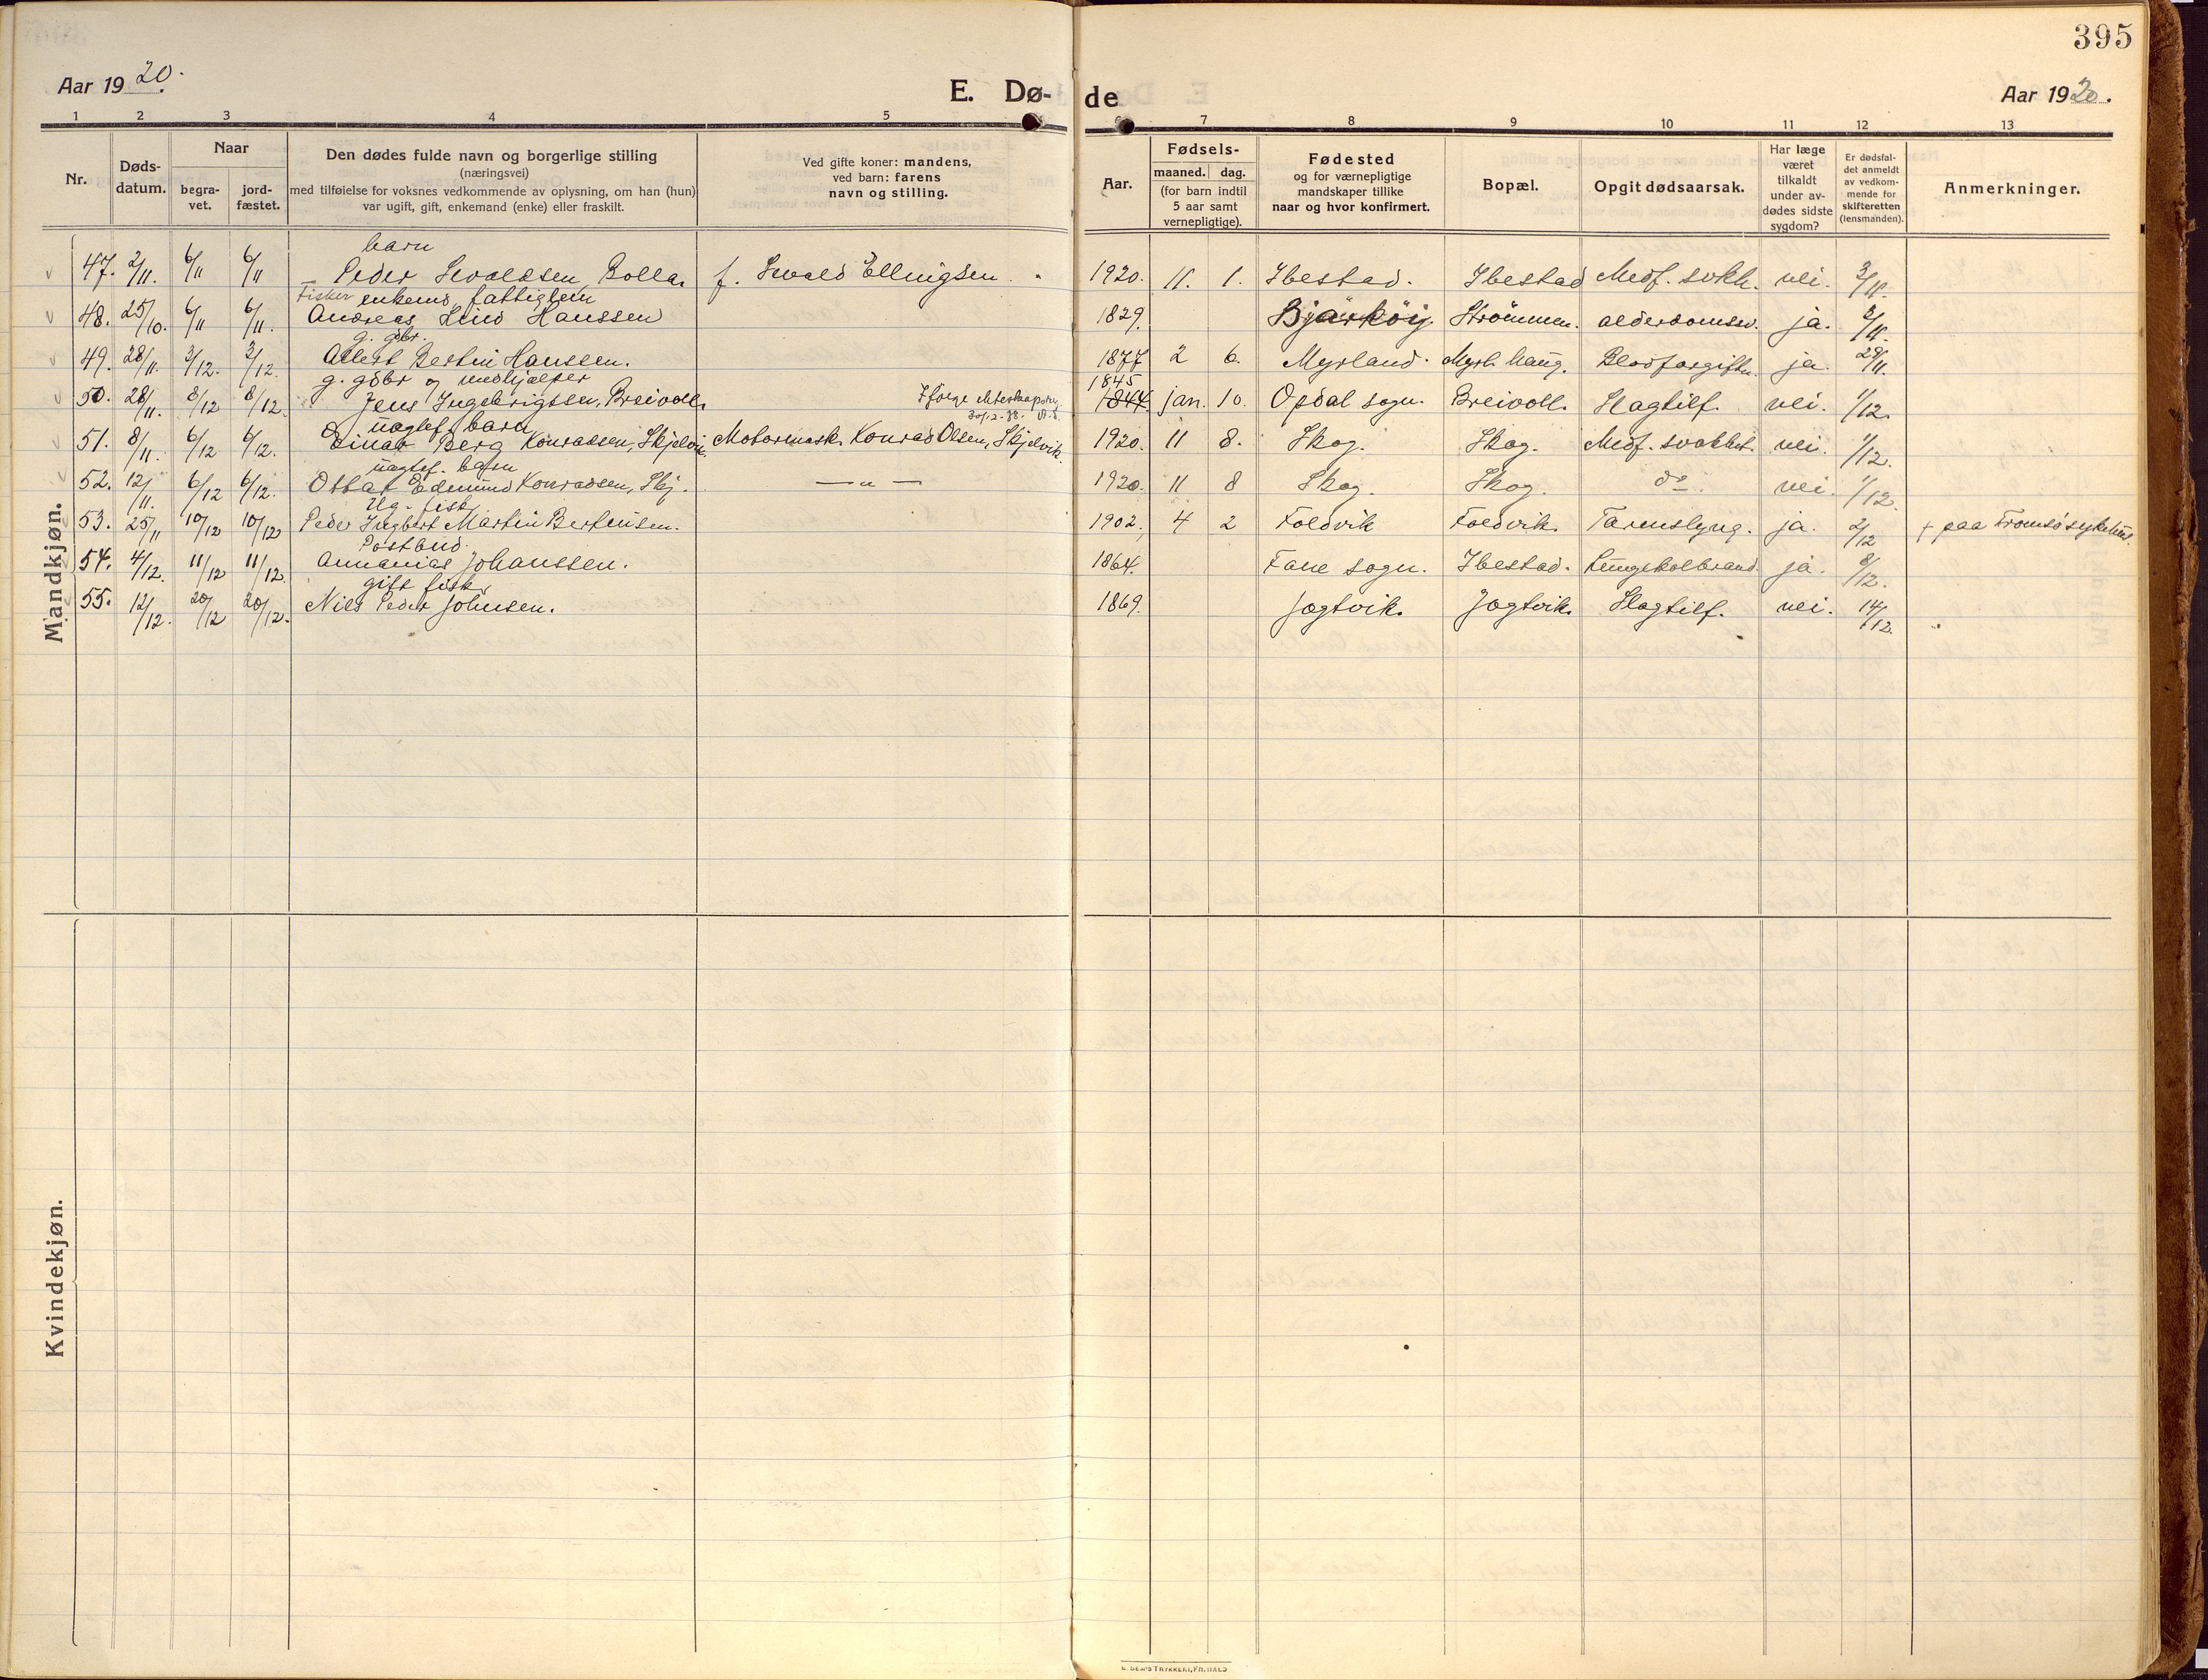 395
Aar 1920.
E. Dø-
de
Aar 1920.
1 2 3 4 5 6 7 8 9 10 11 12 13
Nr.
Døds-
datum.
Naar
begra-
vet.
jord-
fæstet.
Den dødes fulde navn og borgerlige stilling
(næringsvei)
med tilføielse for voksnes vedkommende av oplysning, om han (hun)
var ugift, gift, enkemand (enke) eller fraskilt.
Ved gifte koner: mandens,
ved barn: farens
navn og stilling.
Aar.
Fødsels-
maaned. dag.
(for barn indtil
5 aar samt
vernepligtige).
Fødested
og for værnepligtige
mandskaper tillike
naar og hvor konfirmert.
Bopæl.
Opgit dødsaarsak.
Har læge
været
tilkaldt
under av-
dødes sidste
sygdom?
Er dødsfal-
det anmeldt
av vedkom-
mende for
skifteretten
(lensmanden).
Anmerkninger.
Mandkjøn.
barn
47. 2/11. 6/11 6/11 Peder Sevaldsen, Rolla. f. Sevald Ellingsen. 1920. 11. 1. Ibestad. Ibestad Medf. svkh. nei. 3/11.
Fisker enkemd. fattiglem
48. 25/10. 6/11 6/11. Andreas Lind Hanssen 1829. Bjarkøy. Strömmen. alderdomssv. ja. 2/11.
g. gbr.
49. 28/11. 3/12. 3/12. Albert Bertin Hanssen. 1877 2 6. Myrland. Myrl. haug. Blodforgiftn. ja. 29/11.
g. gbr og nodhjælper
1845
50. 28/11. 8/12 8/12. Jens Ingebrigtsen, Breivoll. 1844 jan. 10. Opdal sogn. Breivoll. Slagtilf. nei. 1/12.
uegtef. barn
51. 8/11. 6/12 6/12. Einar Berg Konradsen, Skjelvik. Motormask. Konrad Olsen, Skjelvik. 1920. 11 8. Skog. Skog. Medf. svakhet. nei. 1/12.
uegtef. barn
52. 12/11. 6/12 6/12. Ottar Edmund Konradsen, Skj. — " — 1920. 11 8 Skog. Skog. do. nei. 1/12.
Ug. fisk.
53. 25/11 10/12 10/12 Peder Ingbert Martin Bertensen. 1902. 4 2 Foldvik Foldvik. Tarmslyng. ja. 2/12 † paa Tromsø sykehus.
Postbud.
54. 4/12. 11/12 11/12. Annanias Johanssen. 1864. Fane sogn. Ibestad. Lungekolbrand. ja. 8/12.
gift fisk.
55. 12/12. 20/12 20/12. Nils Peder Johnsen. 1869. Jagtvik. Jagtvik. Slagtilf. nei. 14/12.
Kvindekjøn.